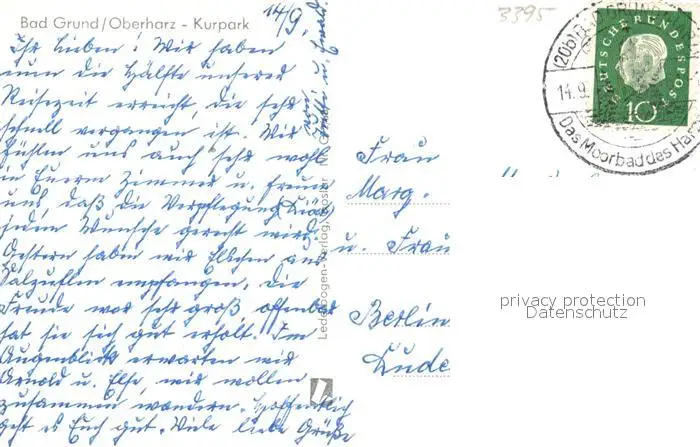 Bad Grund/Oberharz - Kurpark
14/9.
3395
Ihr Lieben! Wir haben
nun die Hälfte unserer
Reisezeit erreicht, die sehr
schnell vergangen ist. Wir
fühlen uns auch sehr wohl
in Euerm Zimmer u. freuen
uns, daß die Verpflegung
jedem Wunsche gerecht wird.
Gestern haben wir Elbchen aus
Salzuflen empfangen, die
Freude war sehr groß offenbar
hat sie sich gut erholt. Im
Augenblick erwarten wir
Arnold u. Else, wir wollen
zusammen wandern. Hoffentlich
geht es Euch gut. Viele liebe Grüße
von
u. Ewald.
Frau
Marg.
u. Frau
Berlin
Lude
(20b) BAD GRUND
14.9.
Das Moorbad des Ha
DEUTSCHE BUNDESPOST
10
privacy protection
Datenschutz